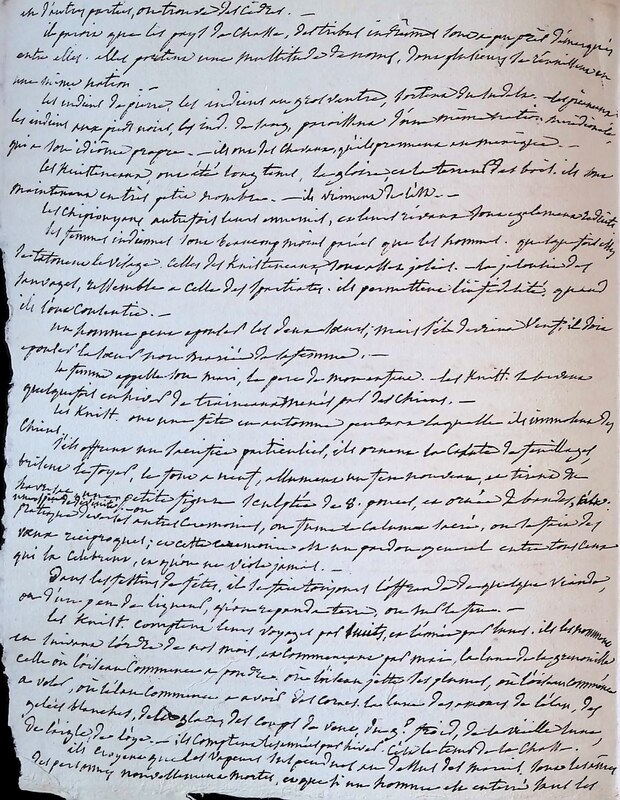 en d'autres parties, on trouve des cèdres. —
il paroit que les pays de chasse, des tribus indiennes sont à peu près démarqués
entre elles. elles portent une multitude de noms, dont plusieurs se réunissent en
une même nation. —
les indiens de pierre, les indiens au gros ventre, sortent du sud-est. les premiers
les indiens aux pieds noirs, les ind. de sang, paroissent d'une même nation méridionale,
qui a son idiôme propre. — ils ont des chevaux, qu'ils prennent au mexique. —
les Knistenaux ont été longtems, la gloire et la terreur des bois. ils sont
maintenant en très petit nombre. — ils viennent de l'E. —
les chipiouyans, autrefois leurs ennemis, et leurs rivaux sont également réduits.
les femmes indiennes sont beaucoup moins que les hommes. quelquefois elles
se tatouent le visage. celles des Knistenaux, sont assez jolies. — la jalousie des
sauvages, ressemble à celle des spartiates. ils permettent l'infidélité, quand
ils l'ont consentie. —
un homme peut épouser les deux soeurs; mais s'il devient veuf, il doit
épouser la soeur non mariée de sa femme. —
la femme appelle son mari, le père de mon enfant. — les Knist. se servent
quelquefois en hiver de traineaux menés par des chiens. —
les Knist. ont une fête en automne pendant laquelle ils immolent des
chiens.
s'ils offrent un sacrifice particulier, ils ornent la cabane de feuillages,
balayent le foyer, le font à neuf, allument un feu nouveau, et
petite figure sculptée de 8. pouces, et ornée de bandes,
pratique diverses autres cérémonies, on fume le calumet sacré, on se fait des
voeux réciproques; et cette cérémonie est un pardon général entre tous ceux
qui la célèbrent, et qu'on ne viole jamais. —
dans les festins de fêtes, il se fait toujours l'offrande de quelque viande,
ou d'un peu de liqueur, qu'on répand à terre, ou sur le feu. —
les Knist. comptent leurs voyages par nuits, et l'année par lunes. ils les nomment
en suivant l'ordre de nos mois, et commençant par mai, la lune de la grenouille
celle où l'oiseau commence à pondre, où l'oiseau jette ses plumes, où l'oiseau commence
à voler, où l'élan commence à avoir des cornes. la lune des amours de l'élan, des
gelées blanches, de la glace, des coups de vent, du g.d froid, de la vieille lune,
de l'aigle, de l'oye. — ils comptent les années par hiver. c'est le tems de la chasse.
ils croyent que les vapeurs suspendues au dessus des marais, sont les âmes
des personnes nouvellement mortes, et que si un homme est enterré sans les